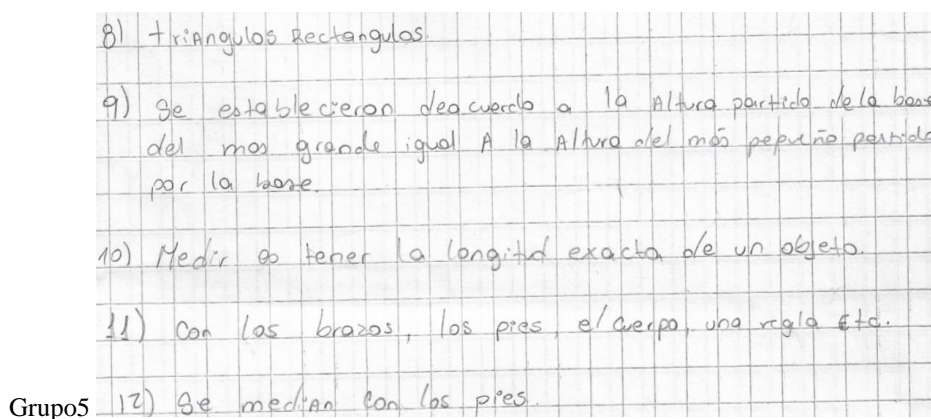 8) triAngulos Rectangulos.
9) Se establecieron deacuerdo a la Altura partido de la base
del mas grande igual A la Altura del más pequeño partido
por la base.
10) Medir es tener la longitud exacta de un objeto.
11) Con los brazos, los pies, el cuerpo, una regla Etc.
Grupo5 12) Se median con los pies.